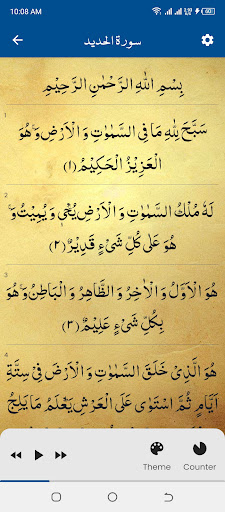 10:08 AM
سورة الحديد
بِسْمِ اللهِ الرَّحْمٰنِ الرَّحِيْمِ
1
سَبَّحَ لِلّٰهِ مَا فِى السَّمٰوٰتِ وَ الْاَرْضِۚ وَ هُوَ
الْعَزِيْزُ الْحَكِيْمُ (۱)
2
لَهٗ مُلْكُ السَّمٰوٰتِ وَ الْاَرْضِۚ يُحْيٖ وَ يُمِيْتُۚ وَ
هُوَ عَلٰى كُلِّ شَیْءٍ قَدِيْرٌ (۲)
3
هُوَ الْاَوَّلُ وَ الْاٰخِرُ وَ الظَّاهِرُ وَ الْبَاطِنُۚ وَ هُوَ
بِكُلِّ شَیْءٍ عَلِيْمٌ (۳)
4
هُوَ الَّذِیْ خَلَقَ السَّمٰوٰتِ وَ الْاَرْضَ فِیْ سِتَّةِ
اَيَّامٍ ثُمَّ اسْتَوٰى عَلَى الْعَرْشِؕ يَعْلَمُ مَا يَلِجُ
Theme Counter